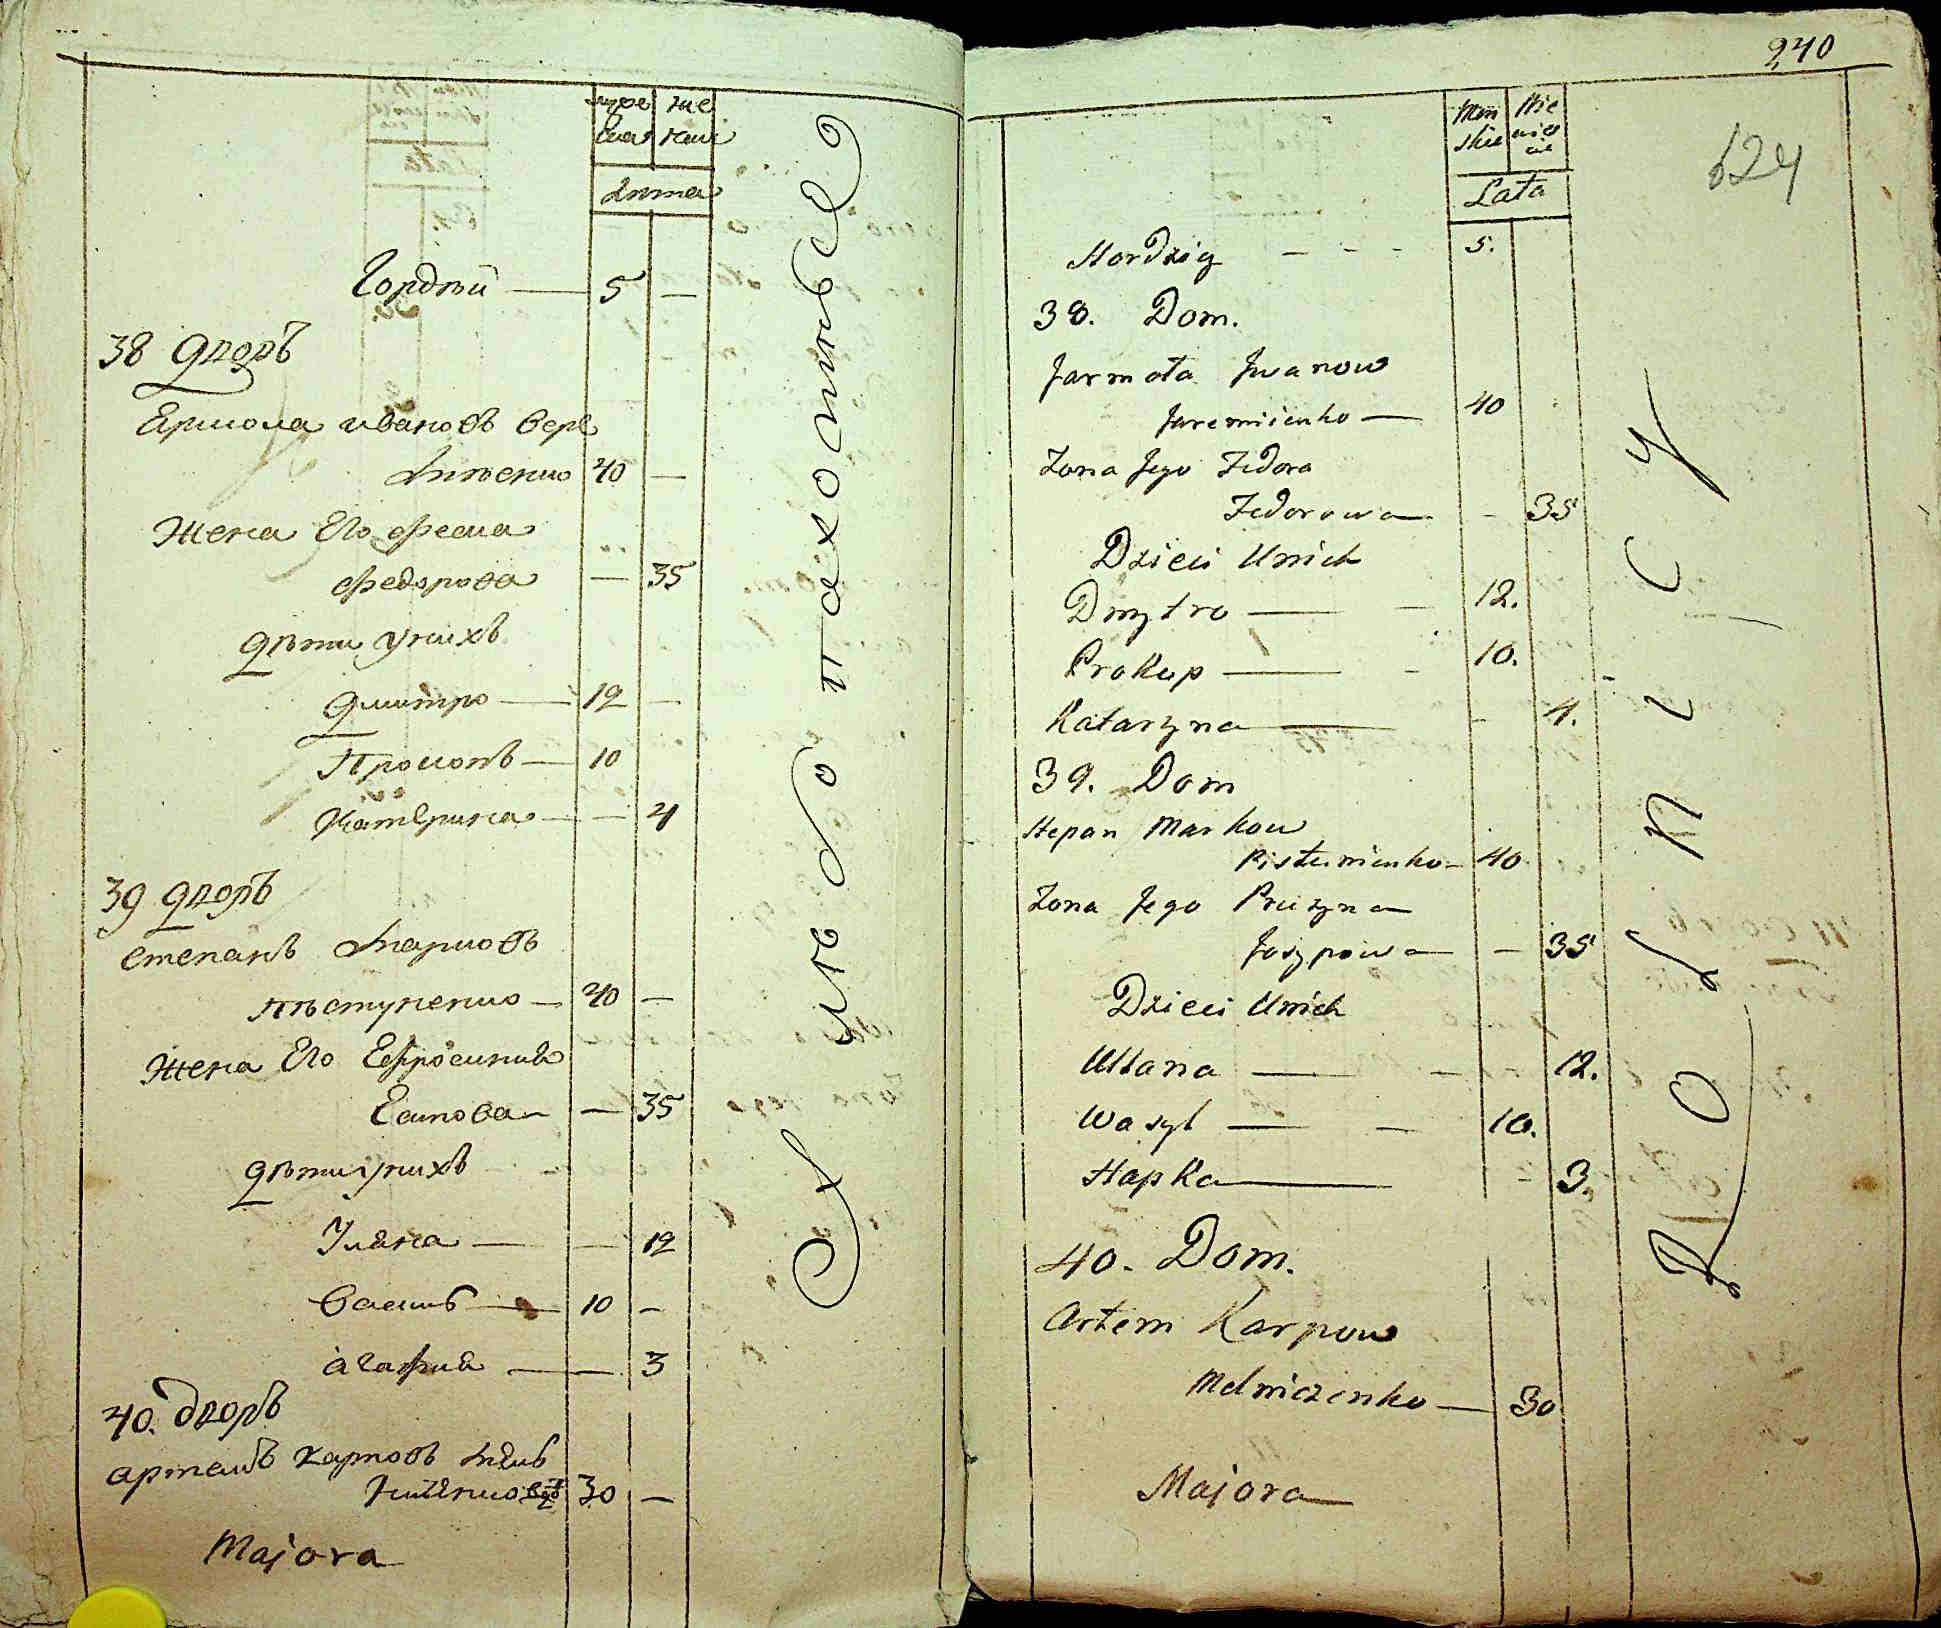 муже же
ска нска
Лѣта
Гордѣй — 5 —
38 дворъ
Ярмола Ивановъ
40 —
Жена Его Феска
Федорова — 35
дѣти у нихъ
Дмитро — 12 —
Прокопъ — 10
Катерина — — 4
39 дворъ
Степанъ Марковъ
Пѣстуненко — 40 —
Жена Его Ефросинія
Есипова — 35
дѣти у нихъ
Уляна — — 12
Василь — 10 —
Агафия — — 3
40. дворъ
Артемъ Карповъ Мел
ниченко 30 —
Majora
Слѣдопахотные
240
624
Męs Nie
skie wies
cie
Lata
Hordziy - - - 5.
38. Dom.
Jarmoła Jwanow
Jaremiienko — 40
Zona Jego Fedora
Fedorowa - 35
Dzieci Unich
Dmytro — - 12.
Prokup — - 10.
Katarzyna — - 4.
39. Dom
Stepan Markow
Pistunienko - 40
Zona Jego Pruzyna
Josypowa - 35
Dzieci Unich
Ullana — - 12.
Wasyl — - 10.
Hapka — - 3.
40. Dom.
Artem Karpow
Melniczenko — 30
Majora
Rolnicy